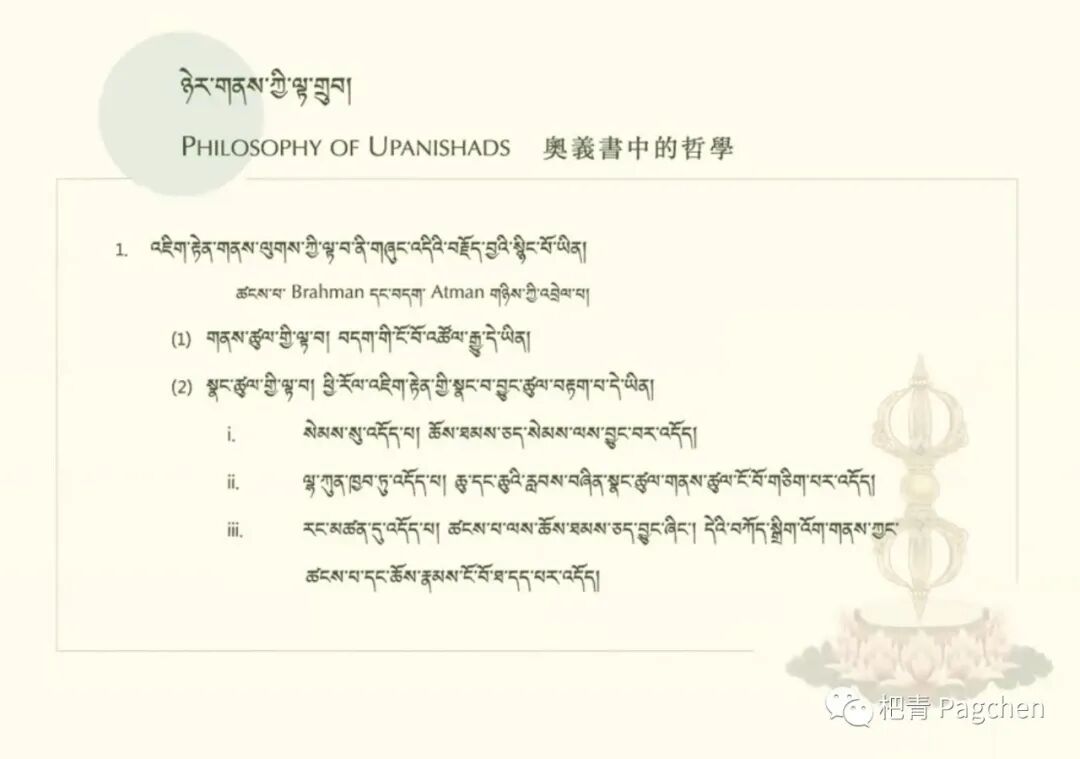 ཉེར་གནས་ཀྱི་ལྟ་གྲུབ།
PHILOSOPHY OF UPANISHADS 奧義書中的哲學
1. འཇིག་རྟེན་གནས་ལུགས་ཀྱི་ལྟ་བ་ནི་གཞུང་འདིའི་བརྗོད་བྱའི་སྙིང་པོ་ཡིན།
ཚངས་པ་ Brahman དང་བདག་ Atman གཉིས་ཀྱི་འབྲེལ་པ།
(1) གནས་ཚུལ་གྱི་ལྟ་བ། བདག་གི་ངོ་བོ་འཚོལ་རྒྱུ་དེ་ཡིན།
(2) སྣང་ཚུལ་གྱི་ལྟ་བ། ཕྱི་རོལ་འཇིག་རྟེན་གྱི་སྣང་བ་བྱུང་ཚུལ་བརྟག་པ་དེ་ཡིན།
i. སེམས་སུ་འདོད་པ། ཆོས་ཐམས་ཅད་སེམས་ལས་བྱུང་བར་འདོད།
ii. ལྷ་ཀུན་ཁྱབ་ཏུ་འདོད་པ། ཆུ་དང་ཆུའི་རླབས་བཞིན་སྣང་ཚུལ་གནས་ཚུལ་ངོ་བོ་གཅིག་པར་འདོད།
iii. རང་མཚན་དུ་འདོད་པ། ཚངས་པ་ལས་ཆོས་ཐམས་ཅད་བྱུང་ཞིང་། དེའི་བཀོད་སྒྲིག་འོག་གནས་ཀྱང་
ཚངས་པ་དང་ཆོས་རྣམས་ངོ་བོ་ཐ་དད་པར་འདོད།
杷青 Pagchen